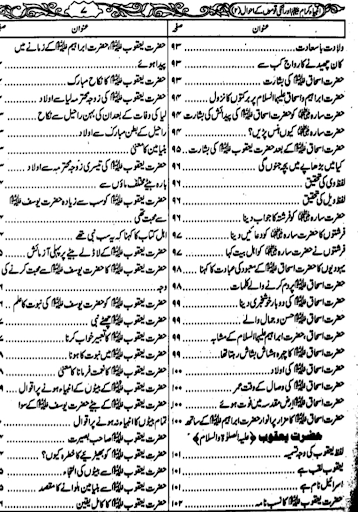 انبیاء کرام علیہم السلام اور انکی قوموں کے احوال (۲)
عنوان صفحہ
ولادت باسعادت ۹۳
کان چھیدنے کا رواج کب سے ۹۳
حضرت اسحاق علیہ السلام کی بشارت ۹۳
حضرت ابراہیم و اسحاق علیہما السلام پر برکتوں کا نزول ۹۴
حضرت سارہ کو حضرت اسحاق علیہ السلام کی پیدائش کی بشارت ۹۴
حضرت سارہ کیوں ہنس پڑیں؟ ۹۴
حضرت اسحاق علیہ السلام کے بعد حضرت یعقوب علیہ السلام کی بشارت ۹۵
کیا میں بڑھاپے میں بچہ جنوں گی ۹۶
لفظ وی کی تحقیق ۹۶
لفظ ویل کی تحقیق ۹۶
حضرت سارہ کو فرشتہ کا جواب دینا ۹۶
فرشتوں کا حضرت سارہ کو دعائیں دینا ۹۷
فرشتوں نے حضرت سارہ کو اہل بیت کہا ۹۷
یہودیوں کا حضرت اسحاق علیہ السلام کے معبود کی عبادت کا کہنا ۹۸
حضرت اسحاق علیہ السلام پر دم کرنے والے کلمات ۹۸
حضرت اسحاق علیہ السلام کی دوبار خوشخبری دینا ۹۹
حضرت اسحاق علیہ السلام حسن و جمال والے ۹۹
حضرت اسحاق علیہ السلام، حضرت ابراہیم علیہما السلام کے مشابہ ۹۹
حضرت اسحاق علیہ السلام کا چہرہ ہشاش بشاش رہتا تھا ۹۹
حضرت اسحاق علیہ السلام کی اولاد ۱۰۰
حضرت اسحاق علیہ السلام کی وصال کے وقت عمر ۱۰۰
حضرت اسحاق علیہ السلام ارض مقدسہ میں فوت ہوئے ۱۰۰
حضرت اسحاق علیہ السلام کا مزار پر انوار حضرت ابراہیم علیہ السلام کے ساتھ ۱۰۰
حضرت یعقوب (علیہ الصلوٰۃ والسلام)
لفظ یعقوب کی وجہ تسمیہ ۱۰۱
یعقوب لقب ہے ۱۰۱
اسرائیل نام ہے ۱۰۱
حضرت یعقوب علیہ السلام کا نسب نامہ ۱۰۲
عنوان صفحہ
حضرت یعقوب علیہ السلام، حضرت ابراہیم علیہ السلام کے زمانے میں
پیدا ہوئے
حضرت یعقوب علیہ السلام کا نکاح مبارک
حضرت یعقوب علیہ السلام کی زوجہ محترمہ لیا سے اولاد
لیا کی وفات کے بعد ان کی بہن راحیل سے نکاح
راحیل کے بطن مبارک سے اولاد
بنیامین کا معنی
حضرت یعقوب علیہ السلام کی تیسری زوجہ محترمہ سے اولاد
بارہ بیٹے مختلف ماؤں سے
حضرت یعقوب علیہ السلام کو سب سے زیادہ حضرت یوسف علیہ السلام
سے محبت تھی
اہل کتاب کا کہنا کہ یہ سب نبی تھے
حضرت یعقوب علیہ السلام کے لاڈلے بیٹے پر پہلی آزمائش
حضرت یعقوب علیہ السلام کا حضرت یوسف علیہ السلام سے محبت کرنے کی
وجہ
حضرت یعقوب علیہ السلام کو حضرت یوسف علیہ السلام کی نبوت کا علم
حضرت یعقوب علیہ السلام نبی
حضرت یعقوب علیہ السلام کا تعبیر خواب کرنا
حضرت یعقوب علیہ السلام میں نبوت کا ہونا
حضرت یعقوب علیہ السلام کا نعت فرمانا کا معنی
حضرت یعقوب علیہ السلام کے بیٹوں کے انبیاء ہونے پر اقوال
حضرت یعقوب علیہ السلام کے بیٹے حضرت یوسف علیہ السلام کے سوا
تمام بیٹوں کا انبیاء نہ ہونے پر اقوال
حضرت یعقوب علیہ السلام صاحب بصیرت
حضرت یعقوب علیہ السلام نے بھیڑیے کا خطرہ کیوں کہا؟
حضرت یعقوب علیہ السلام سے بیٹوں کی التجاء
حضرت یعقوب علیہ السلام سے بنیامین بلوانے کا مقصد
حضرت یعقوب علیہ السلام کا کامل یقین